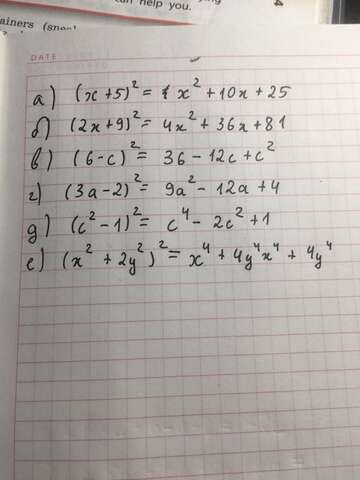 an help you.
ainers (snea
DATE
а) (x+5)² = x² + 10x + 25
б) (2x+9)² = 4x² + 36x + 81
в) (6-c)² = 36 - 12c + c²
г) (3a-2)² = 9a² - 12a + 4
д) (c²-1)² = c⁴ - 2c² + 1
е) (x² + 2y²)² = x⁴ + 4y⁴x⁴ + 4y⁴